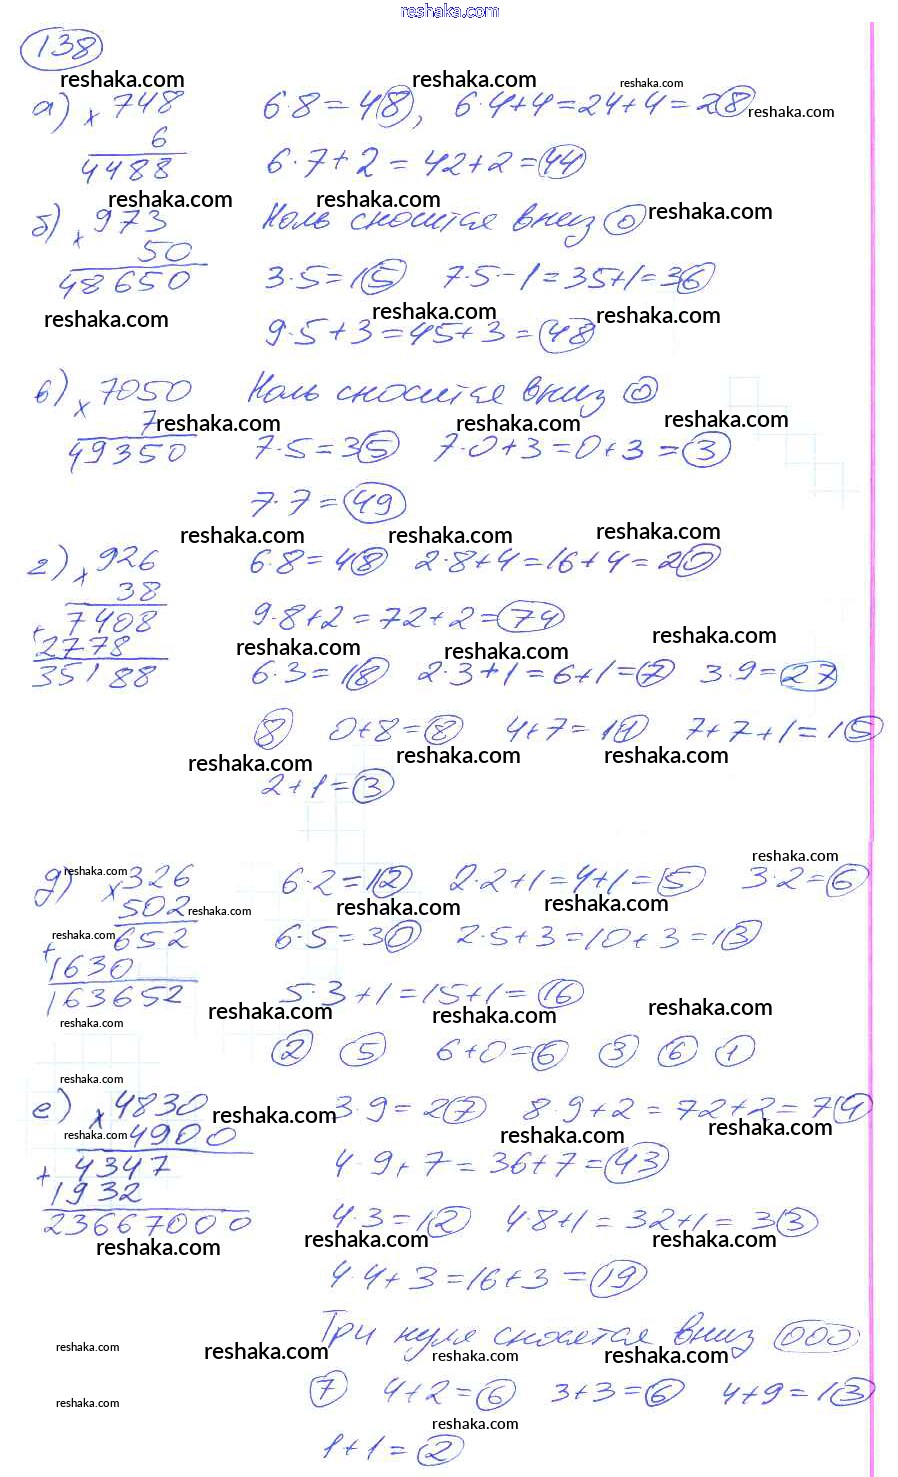 reshaka.com
138
reshaka.com reshaka.com reshaka.com
а) × 748 6·8=48, 6·4+4=24+4=28 reshaka.com
6
4488 6·7+2=42+2=44
reshaka.com reshaka.com reshaka.com
б) × 973 Ноль сносится вниз 0
50
48650 3·5=15 7·5-1=35+1=36
reshaka.com reshaka.com reshaka.com
9·5+3=45+3=48
в) × 7050 Ноль сносится вниз 0
7 reshaka.com reshaka.com reshaka.com
49350 7·5=35 7·0+3=0+3=3
7·7=49
reshaka.com reshaka.com reshaka.com
г) × 926 6·8=48 2·8+4=16+4=20
38
+ 7408 9·8+2=72+2=74
2778 reshaka.com reshaka.com reshaka.com
35188 6·3=18 2·3+1=6+1=7 3·9=27
8 0+8=8 4+7=11 7+7+1=15
reshaka.com reshaka.com reshaka.com
2+1=3
reshaka.com
д) reshaka.com × 326 6·2=12 2·2+1=4+1=5 3·2=6
502 reshaka.com reshaka.com reshaka.com
reshaka.com + 652 6·5=30 2·5+3=10+3=13
1630
163652 5·3+1=15+1=16
reshaka.com reshaka.com reshaka.com reshaka.com
2 5 6+0=6 3 6 1
reshaka.com
е) × 4830 reshaka.com 3·9=27 8·9+2=72+2=74
reshaka.com 4900 reshaka.com reshaka.com
+ 4347 4·9+7=36+7=43
1932
23667000 4·3=12 4·8+1=32+1=33
reshaka.com reshaka.com reshaka.com
4·4+3=16+3=19
Три нуля сносятся вниз 000
reshaka.com reshaka.com reshaka.com reshaka.com
7 4+2=6 3+3=6 4+9=13
reshaka.com reshaka.com
1+1=2